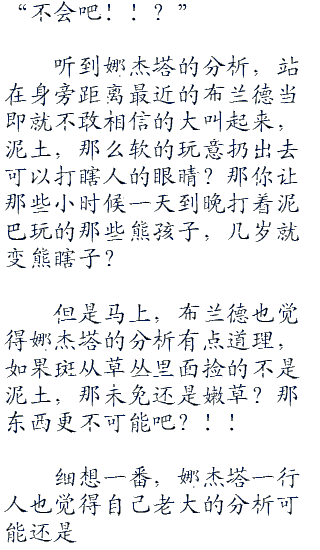 “不会吧！！？”
听到娜杰塔的分析，站
在身旁距离最近的布兰德当
即就不敢相信的大叫起来，
泥土，那么软的玩意扔出去
可以打瞎人的眼睛？那你让
那些小时候一天到晚打着泥
巴玩的那些熊孩子，几岁就
变熊瞎子？
但是马上，布兰德也觉
得娜杰塔的分析有点道理，
如果斑从草丛里面捡的不是
泥土，那未免还是嫩草？那
东西更不可能吧？！！
细想一番，娜杰塔一行
人也觉得自己老大的分析可
能还是